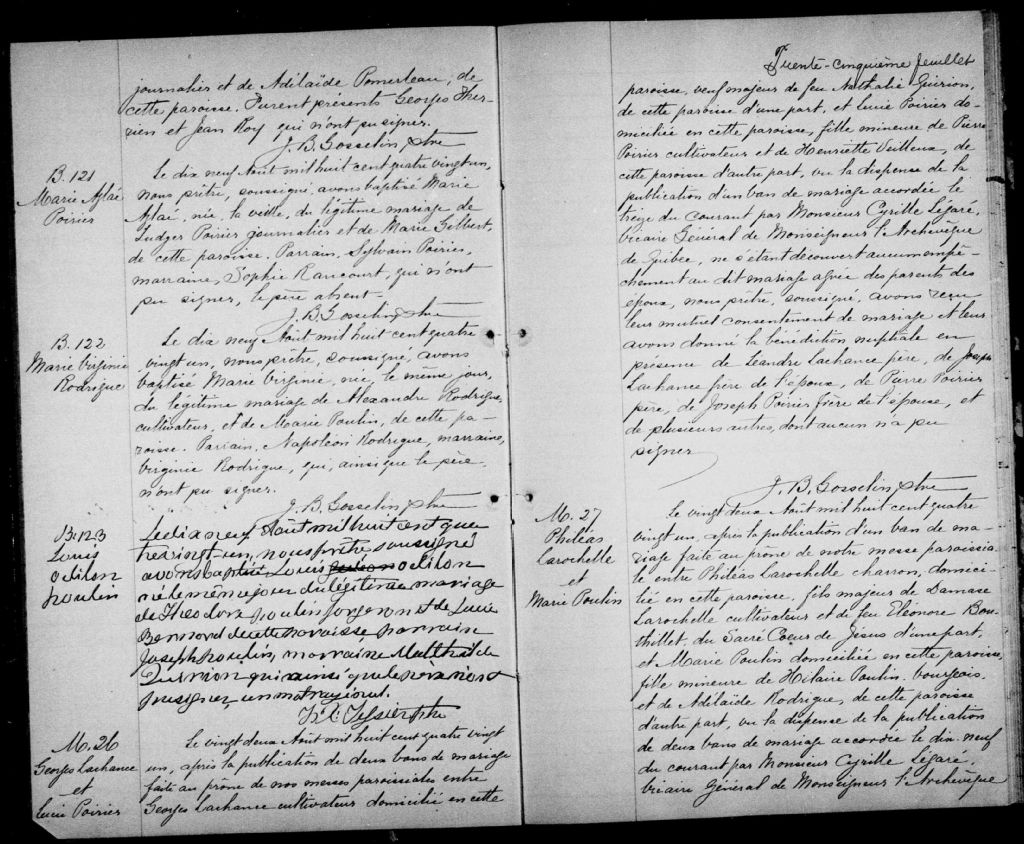 journalier et de Adélaïde Pomerleau, de
cette paroisse. Furent présents Georges Ther-
rien et Jean Roy qui n'ont pu signer.
J. B. Gosselin, Ptre
B. 121
Marie Aglaé
Poirier
Le dix neuf Août mil huit cent quatre vingt un,
nous prêtre, soussigné, avons baptisé Marie
Aglaé, née, la veille, du légitime mariage de
Ludger Poirier journalier et de Marie Gilbert,
de cette paroisse. Parrain, Sylvain Poirier,
marraine, Sophie Rancourt, qui n'ont
pu signer, le père absent.
J. B. Gosselin, Ptre
B. 122
Marie Virginie
Rodrigue
Le dix neuf Août mil huit cent quatre
vingt un, nous prêtre, soussigné, avons
baptisé Marie Virginie, née, le même jour,
du légitime mariage de Alexandre Rodrigue,
cultivateur, et de Marie Poulin, de cette pa-
roisse. Parrain, Napoléon Rodrigue, marraine,
Virginie Rodrigue, qui, ainsi que le père,
n'ont pu signer.
J. B. Gosselin, Ptre
B. 123
Louis
odilon
poulin
Le dix neuf Août mil huit cent qua
tre vingt-un, nous prêtre soussigné
avons baptisé, Louis odilon
né le même jour du légitime mariage
de Théodore poulin forgeron et de Lucie
Bernard de cette paroisse parrain
Joseph poulin, marraine Mathilde
qui ainsi que le père n'ont
pu signer un mot rayé nul.
M. 26
Georges Lachance
et
Lucie Poirier
Le vingt deux Août mil huit cent quatre vingt
un, après la publication de deux bans de mariage
faite au prône de nos messes paroissiales entre
Georges Lachance cultivateur domicilié en cette
Trente-cinquième feuillet
paroisse, veuf majeur de feu Nathalie Quirion,
de cette paroisse d'une part, et Lucie Poirier do-
miciliée en cette paroisse, fille mineure de Pierre
Poirier cultivateur et de Henriette Veilleux, de
cette paroisse d'autre part, vu la dispense de la
publication d'un ban de mariage accordée le
treize du courant par Monsieur Cyrille Légaré,
Vicaire Général de Monseigneur l'Archevêque
de Québec, ne s'étant découvert aucun empê-
chement au dit mariage agréé des parents des
époux, nous prêtre, soussigné, avons reçu
leur mutuel consentement de mariage et leur
avons donné la bénédiction nuptiale en
présence de Léandre Lachance père, de Joseph
Lachance frère de l'époux, de Pierre Poirier
père, de Joseph Poirier frère de l'épouse, et
de plusieurs autres, dont aucun n'a pu
signer
J. B. Gosselin, Ptre
M. 27
Philéas
Larochelle
et
Marie Poulin
Le vingt deux Août mil huit cent quatre
vingt un, après la publication d'un ban de ma-
riage faite au prône de notre messe paroissia-
le entre Philéas Larochelle charron, domici-
lié en cette paroisse, fils majeur de Damase
Larochelle cultivateur et de feu Eléonore Bou-
thillet, du Sacré Coeur de Jésus d'une part,
et Marie Poulin domiciliée en cette paroisse,
fille mineure de Hilaire Poulin, bourgeois,
et de Adélaïde Rodrigue, de cette paroisse
d'autre part, vu la dispense de la publication
de deux bans de mariage accordée le dix-neuf
du courant par Monsieur Cyrille Légaré,
Vicaire Général de Monseigneur l'Archevêque